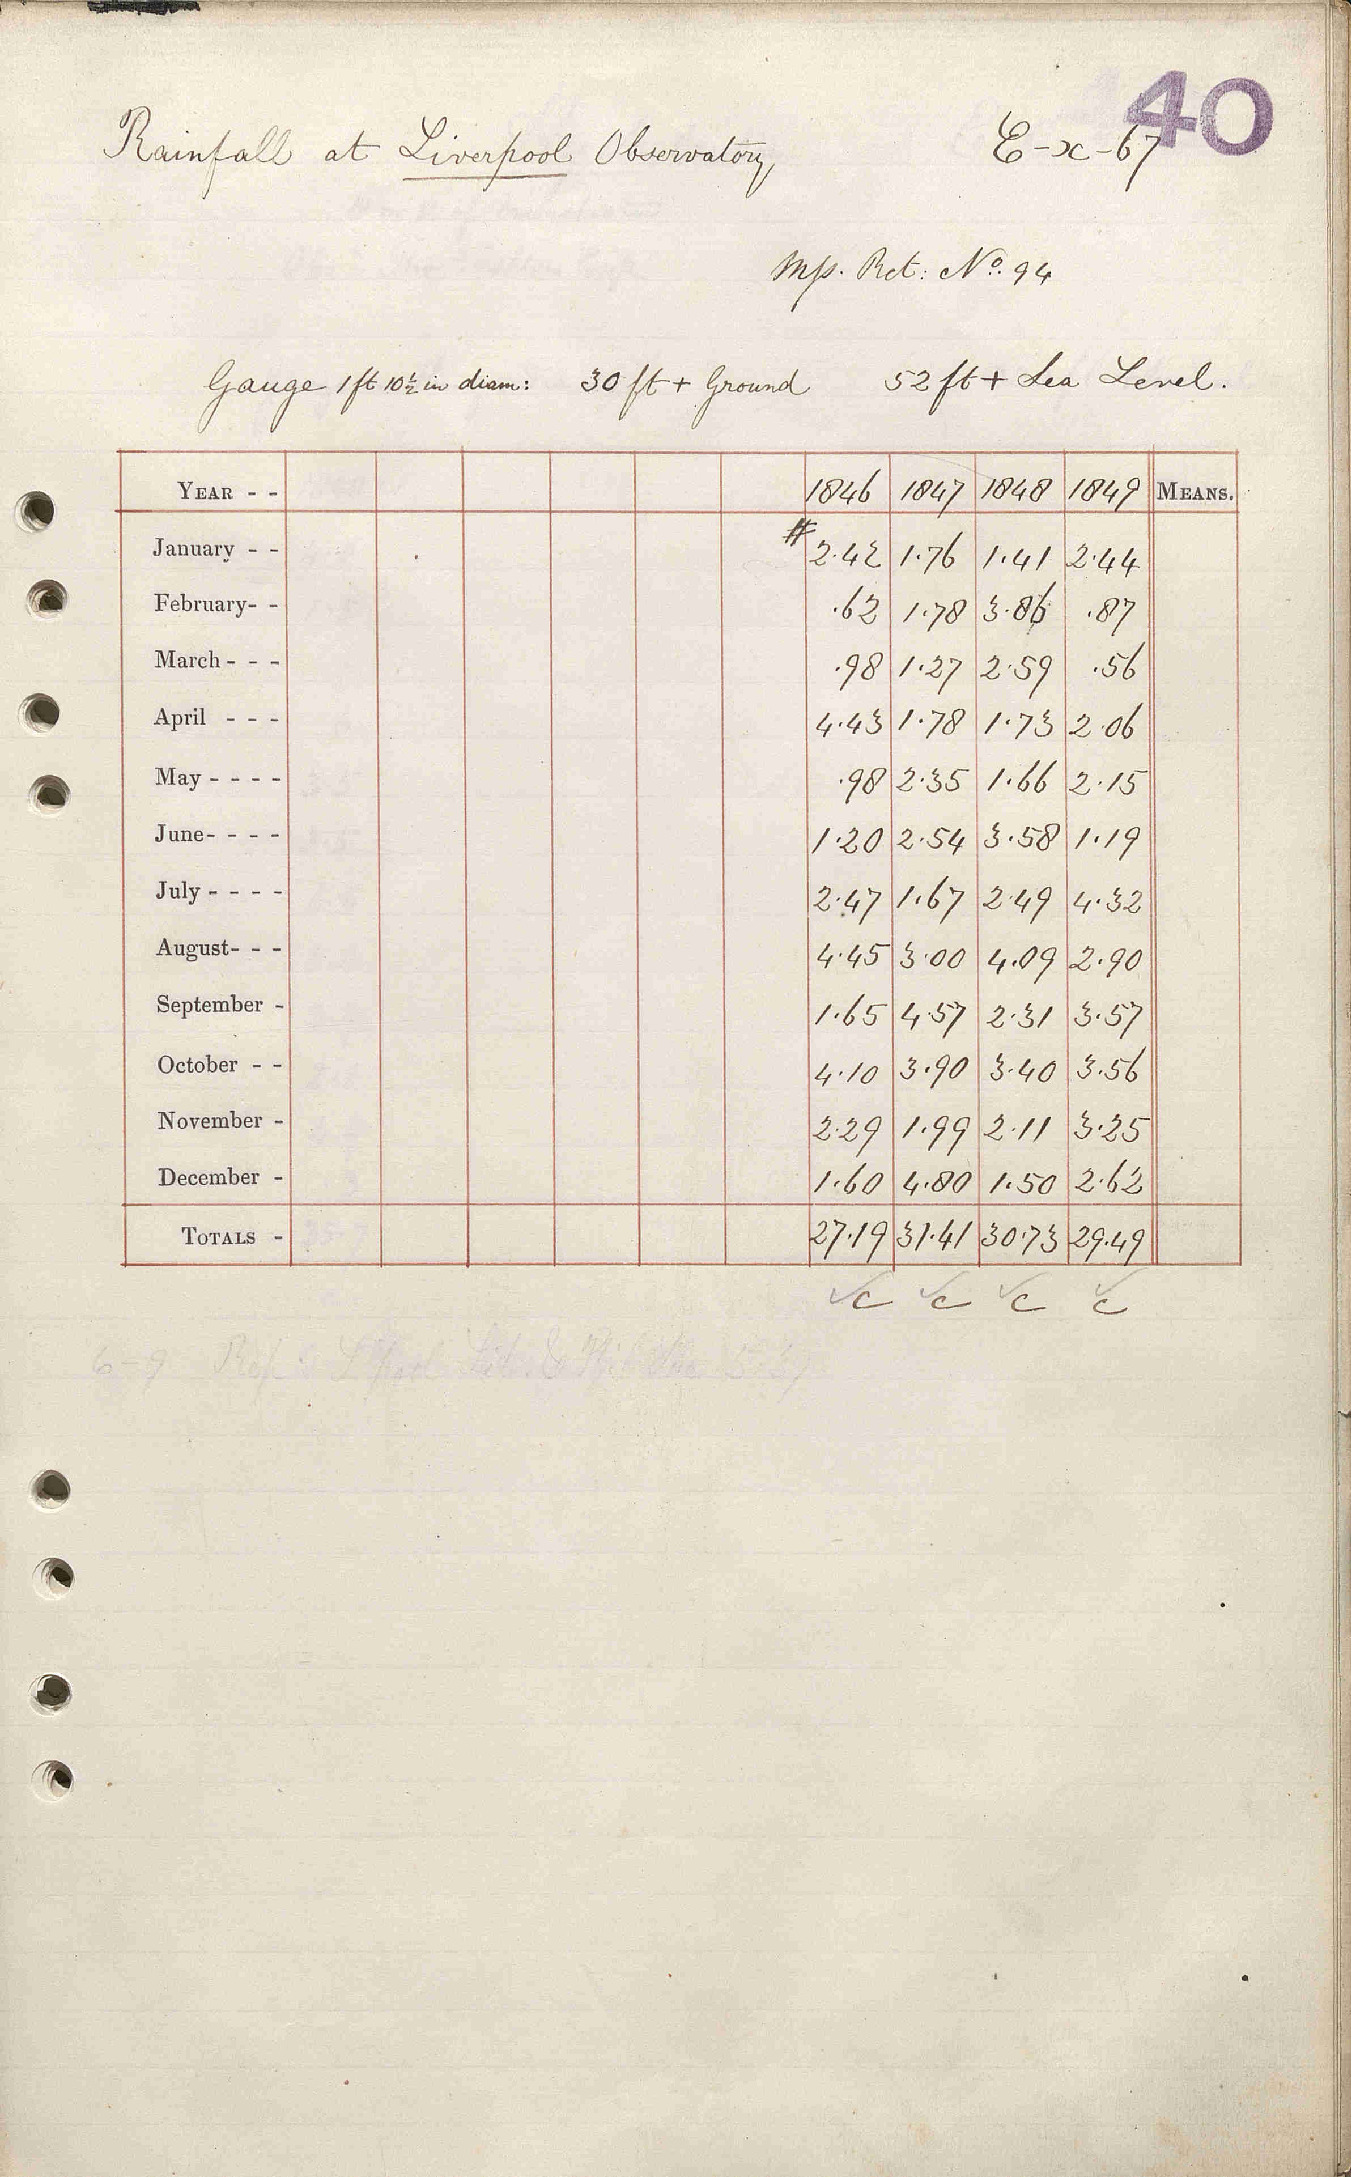 40
Rainfall at Liverpool Observatory E-x-67
Mp. Ret: No. 94
Gauge 1 ft 10½ in diam: 30 ft + Ground 52 ft + Sea Level.
YEAR - - 1846 1847 1848 1849 MEANS.
January - - # 2.42 1.76 1.41 2.44
February - - .62 1.78 3.86 .87
March - - - .98 1.27 2.59 .56
April - - - 4.43 1.78 1.73 2.06
May - - - - .98 2.35 1.66 2.15
June - - - - 1.20 2.54 3.58 1.19
July - - - - 2.47 1.67 2.49 4.32
August - - - 4.45 3.00 4.09 2.90
September - 1.65 4.57 2.31 3.57
October - - 4.10 3.90 3.40 3.56
November - 2.29 1.99 2.11 3.25
December - 1.60 4.80 1.50 2.62
TOTALS - 27.19 31.41 30.73 29.49
✓c ✓c ✓c ✓c
6-9